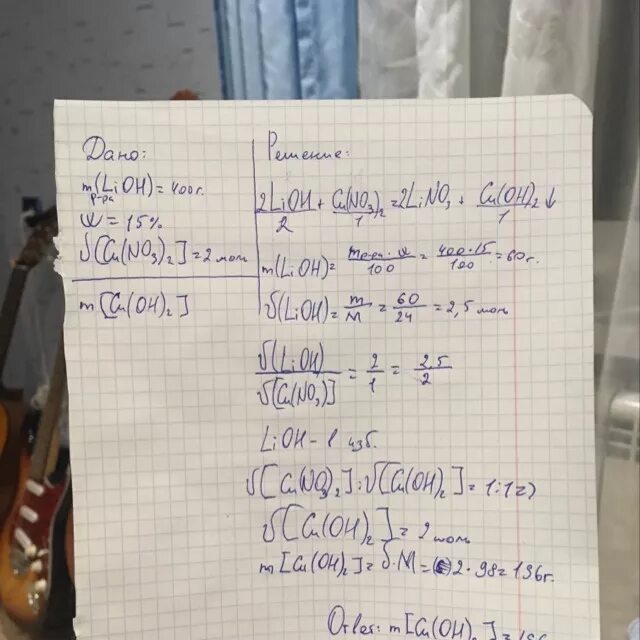 Дано:
m(LiOH)=400г.
р-ра
ω=15%
υ[Cu(NO₃)₂]=2 моль
m[Cu(OH)₂]
Решение:
2LiOH + Cu(NO₃)₂=2LiNO₃ + Cu(OH)₂↓
2 1 1
m(LiOH)= mр-ра·ω/100 = 400·15/100 =60г.
υ(LiOH)= m/M = 60/24 = 2,5 моль
υ(LiOH)/υ[Cu(NO₃)] = 2/1 = 2,5/2
LiOH - в изб.
υ[Cu(NO₃)₂]:υ[Cu(OH)₂]=1:1⇒
υ[Cu(OH)₂]=2 моль
m[Cu(OH)₂]=υ·M=2·98=196г.
Ответ: m[Cu(OH)₂]=196